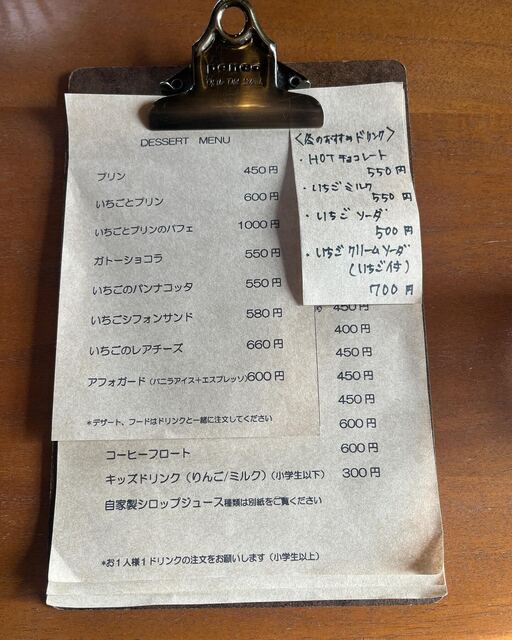 penco
DESSERT MENU
プリン 450円
いちごとプリン 600円
いちごとプリンのパフェ 1000円
ガトーショコラ 550円
いちごのパンナコッタ 550円
いちごシフォンサンド 580円
いちごのレアチーズ 660円
アフォガード(バニラアイス+エスプレッソ)600円
*デザート、フードはドリンクと一緒に注文してください
<冬のおすすめドリンク>
・HOTチョコレート
550円
・いちごミルク
550円
・いちごソーダ
500円
・いちごクリームソーダ
(いちご付)
700円
450円
400円
450円
450円
450円
600円
コーヒーフロート 600円
キッズドリンク(りんご/ミルク)(小学生以下) 300円
自家製シロップジュース種類は別紙をご覧ください
*お1人様1ドリンクの注文をお願いします(小学生以上)